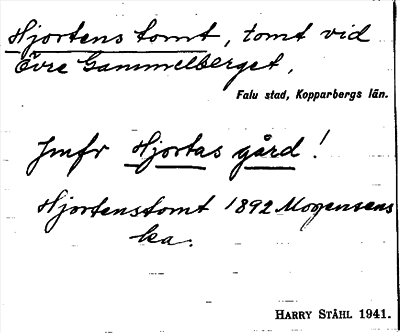 Hjortens tomt, tomt vid
Övre Gammelberget,
Falu stad, Kopparbergs län.
Jmfr Hjortas gård!
Hjortenstomt 1892 Mogensens
ka.
HARRY STÅHL 1941.